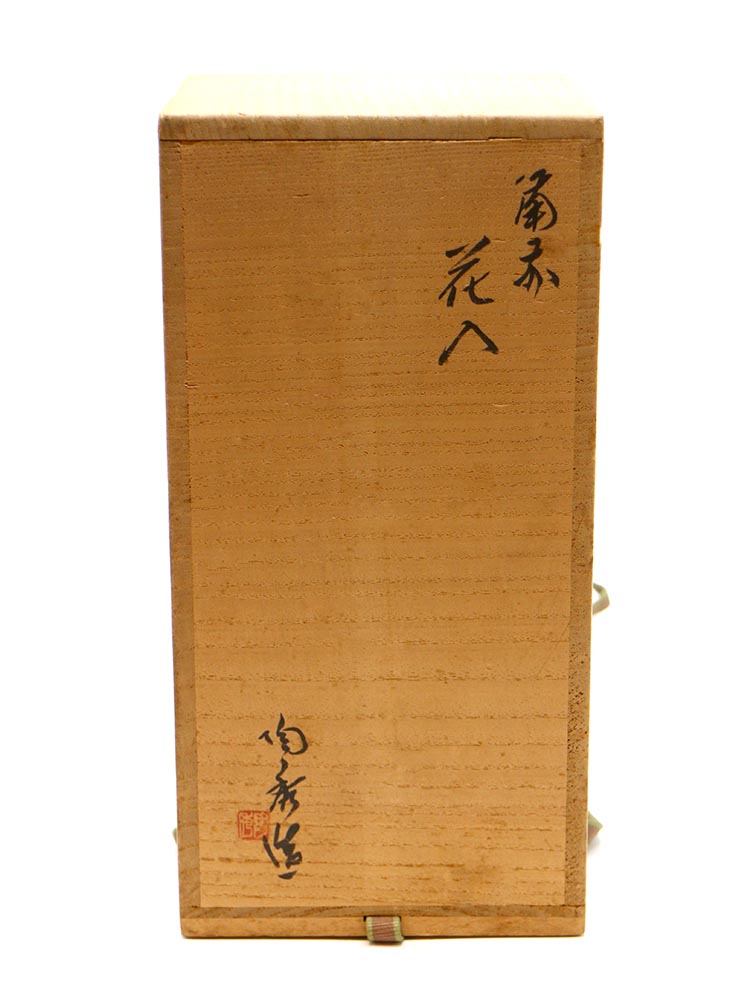 備前
花入
陶秀造